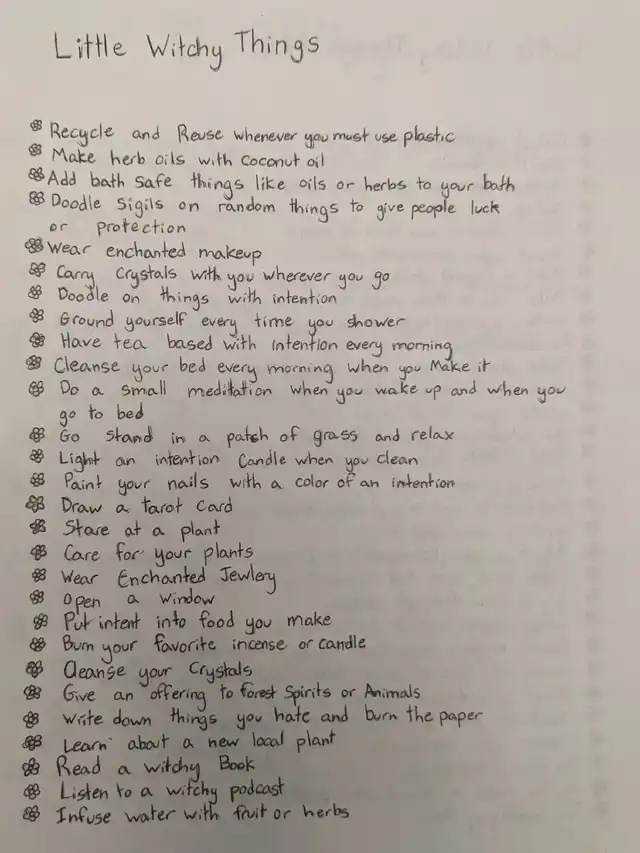 Little Witchy Things
Recycle and Reuse whenever you must use plastic
Make herb oils with coconut oil
Add bath safe things like oils or herbs to your bath
Doodle Sigils on random things to give people luck
or protection
Wear enchanted makeup
Carry Crystals with you wherever you go
Doodle on things with intention
Ground yourself every time you shower
Have tea based with intention every morning
Cleanse your bed every morning when you Make it
Do a small meditation when you wake up and when you
go to bed
Go stand in a patch of grass and relax
Light an intention Candle when you clean
Paint your nails with a color of an intention
Draw a tarot card
Stare at a plant
Care for your plants
Wear Enchanted Jewlery
Open a window
Put intent into food you make
Burn your favorite incense or candle
Cleanse your Crystals
Give an offering to forest Spirits or Animals
Write down things you hate and burn the paper
Learn about a new local plant
Read a witchy Book
Listen to a witchy podcast
Infuse water with fruit or herbs